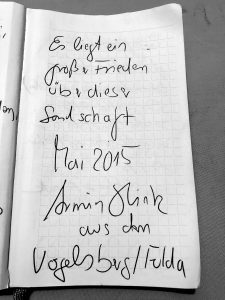 Es liegt ein
großer Frieden
über dieser
Landschaft
Mai 2015
Armin
aus dem
Vogelsberg//Fulda